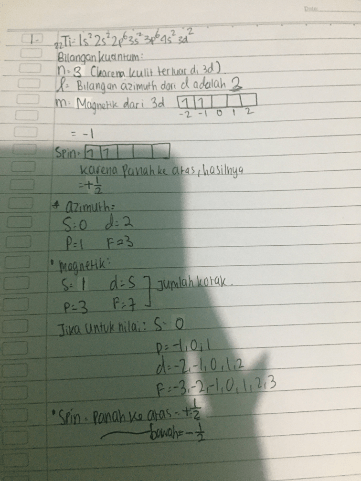 1. ₂₂Ti = 1s² 2s² 2p⁶ 3s² 3p⁶ 4s² 3d²
Bilangan kuantum:
n = 3 (karena kulit terluar di 3d)
l = Bilangan azimuth dari d adalah 2
m = Magnetik dari 3d 1 1
-2 -1 0 1 2
= -1
Spin = 1 1
karena Panah ke atas, hasilnya
= +½
* azimuth =
S=0 d=2
P=1 F=3
• magnetik:
S=1 d=5
P=3 F=7 Jumlah kotak
Jika untuk nilai: S= 0
P= -1, 0, 1
d= -2, -1, 0, 1, 2
F= -3, -2, -1, 0, 1, 2, 3
• Spin = Panah ke atas = +½
bawah = -½